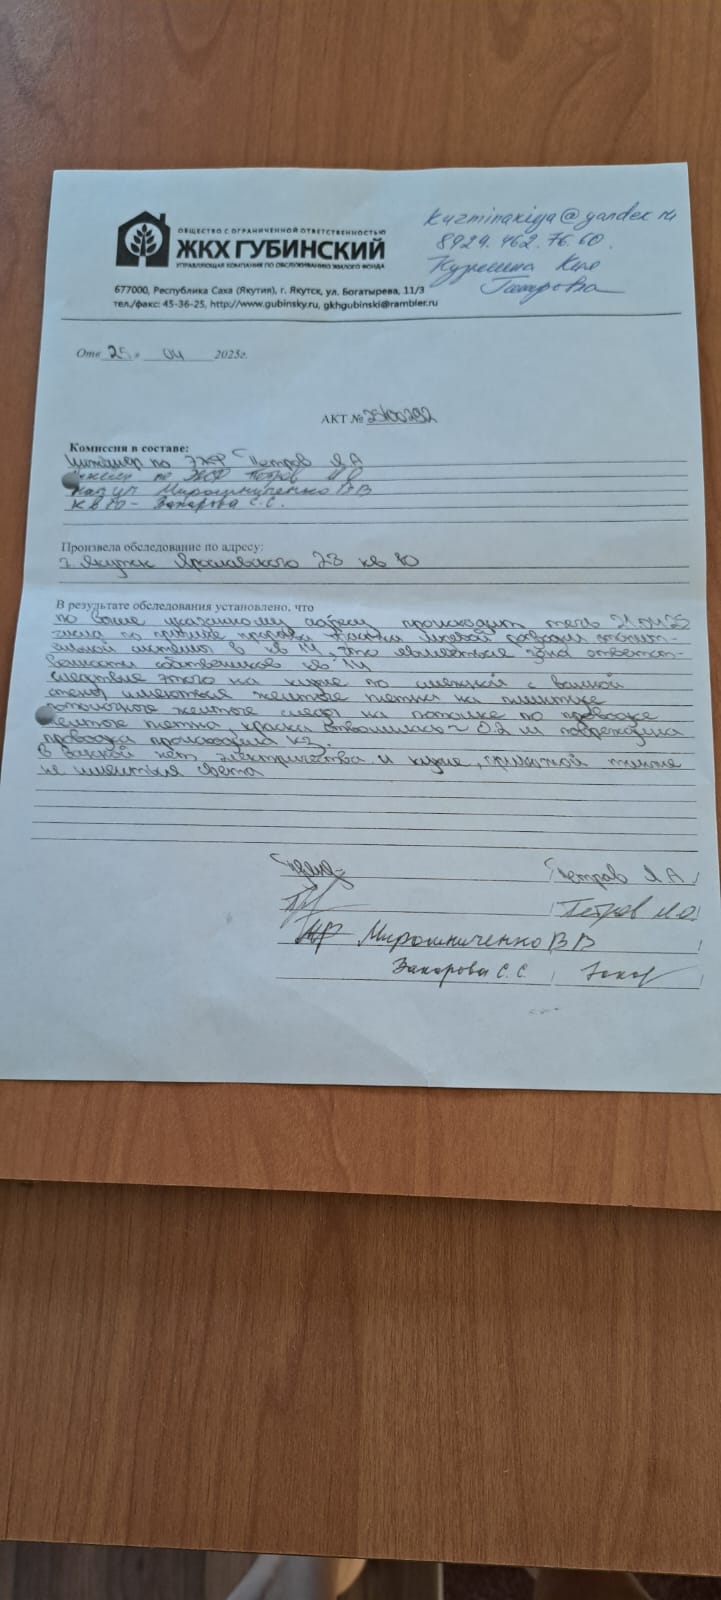 ОБЩЕСТВО С ОГРАНИЧЕННОЙ ОТВЕТСТВЕННОСТЬЮ
ЖКХ ГУБИНСКИЙ
УПРАВЛЯЮЩАЯ КОМПАНИЯ ПО ОБСЛУЖИВАНИЮ ЖИЛОГО ФОНДА
677000, Республика Саха (Якутия), г. Якутск, ул. Богатырева, 11/3
тел./факс: 45-36-25, http://www.gubinsky.ru, gkhgubinski@rambler.ru
kuzminakiya@yandex.ru
8924.462.76.60.
Кузьмина
От « 25 » 04 2025г.
АКТ № 25/00292
Комиссия в составе:
Инженер по ЭЖФ Петров Л А
по ЭЖФ Петров М О
Мирошниченко В В
кв 80 - Захарова С.С.
Произвела обследование по адресу:
г. Якутск Ярославского 23 кв 80
В результате обследования установлено, что
по выше указанному адресу происходит течь 21.04.25
числа по причине прорыва разводки отопи-
тельной системы в кв 114, что является зона ответст-
венности собственников кв 114
следствие этого на кухне по смежной с ванной
стене имеются желтые пятна на плинтусе
потолочном желтые следы на потолке по проводке
желтые пятна, краска отвалилась ~ 0.2 м повреждена
проводка происходила кз.
в ванной нет электричества и кухне,
не имеется света
Петров Л А
Петров М О
Мирошниченко В В
Захарова С. С.